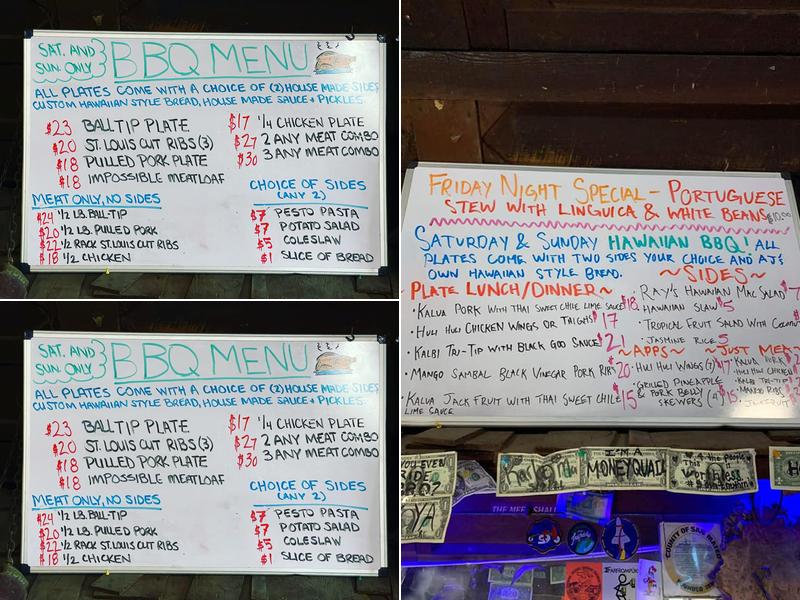 SAT. AND
SUN. ONLY
BBQ MENU
ALL PLATES COME WITH A CHOICE OF (2) HOUSE MADE SIDES
CUSTOM HAWAIIAN STYLE BREAD, HOUSE MADE SAUCE + PICKLES.
$23 BALL TIP PLATE
$20 ST. LOUIS CUT RIBS (3)
$18 PULLED PORK PLATE
$18 IMPOSSIBLE MEATLOAF
$17 1/4 CHICKEN PLATE
$27 2 ANY MEAT COMBO
$30 3 ANY MEAT COMBO
MEAT ONLY, NO SIDES
$24 1/2 LB. BALL-TIP
$20 1/2 LB. PULLED PORK
$22 1/2 RACK ST. LOUIS CUT RIBS
$18 1/2 CHICKEN
CHOICE OF SIDES
(ANY 2)
$7 PESTO PASTA
$7 POTATO SALAD
$5 COLESLAW
$1 SLICE OF BREAD
FRIDAY NIGHT SPECIAL - PORTUGUESE
STEW WITH LINGUICA & WHITE BEANS
SATURDAY & SUNDAY HAWAIIAN BBQ! ALL
PLATES COME WITH TWO SIDES YOUR CHOICE AND AJ'S
OWN HAWAIIAN STYLE BREAD.
~SIDES~
PLATE LUNCH/DINNER~
· KALUA PORK WITH THAI SWEET CHILE LIME SAUCE $18
· HULI HULI CHICKEN WINGS OR THIGHS $17
· KALBI TRI-TIP WITH BLACK GOO SAUCE $21
· MANGO SAMBAL BLACK VINEGAR PORK RIBS $20
· KALUA JACK FRUIT WITH THAI SWEET CHILE $15
LIME SAUCE
· RAY'S HAWAIIAN MAC SALAD $7
· HAWAIIAN SLAW $5
· TROPICAL FRUIT SALAD WITH COCONUT
· JASMINE RICE 5
~APPS~
· HULI HULI WINGS
· GRILLED PINEAPPLE
& PORK BELLY
SKEWERS
~JUST MEAT
KALUA PORK
HULI HULI CHICKEN
KALBI TRI-TIP
MANGO RIBS
SAT. AND
SUN. ONLY
BBQ MENU
ALL PLATES COME WITH A CHOICE OF (2) HOUSE MADE SIDES
CUSTOM HAWAIIAN STYLE BREAD, HOUSE MADE SAUCE + PICKLES.
$23 BALL TIP PLATE
$20 ST. LOUIS CUT RIBS (3)
$18 PULLED PORK PLATE
$18 IMPOSSIBLE MEATLOAF
$17 1/4 CHICKEN PLATE
$27 2 ANY MEAT COMBO
$30 3 ANY MEAT COMBO
MEAT ONLY, NO SIDES
$24 1/2 LB. BALL-TIP
$20 1/2 LB. PULLED PORK
$22 1/2 RACK ST. LOUIS CUT RIBS
$18 1/2 CHICKEN
CHOICE OF SIDES
(ANY 2)
$7 PESTO PASTA
$7 POTATO SALAD
$5 COLESLAW
$1 SLICE OF BREAD
I'M A
MONEYQUAD
THE MEE
SHALL
COUNTY OF SAN MATEO